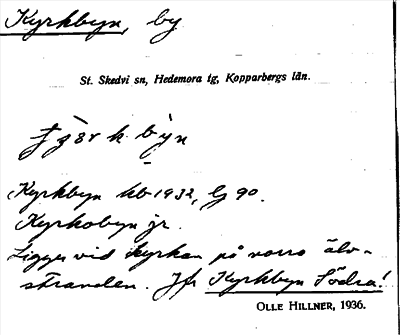 Kyrkbyn, by
St. Skedvi sn, Hedemora tg, Kopparbergs län.
Kyrkbyn kb 1932, Lj 90.
Kyrkobyn jr.
Ligger vid kyrkan på norra älv-
stranden. Jfr Kyrkbyn Södra!
OLLE HILLNER, 1936.